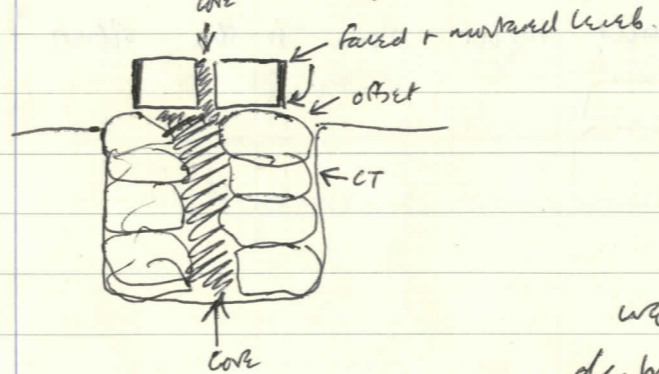 core
faced + mortared levels.
offset
CT
core